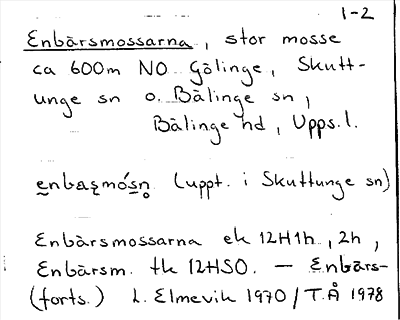 1-2
Enbärsmossarna, stor mosse
ca 600m NO Gölinge, Skutt-
unge sn o. Bälinge sn,
Bälinge hd, Upps.l.
enbas̨mósn̥ (uppt. i Skuttunge sn)
Enbärsmossarna ek 12H1h, 2h,
Enbärsm. tk 12HSO. — Enbärs-
(forts.) L. Elmevik 1970/T.Å 1978